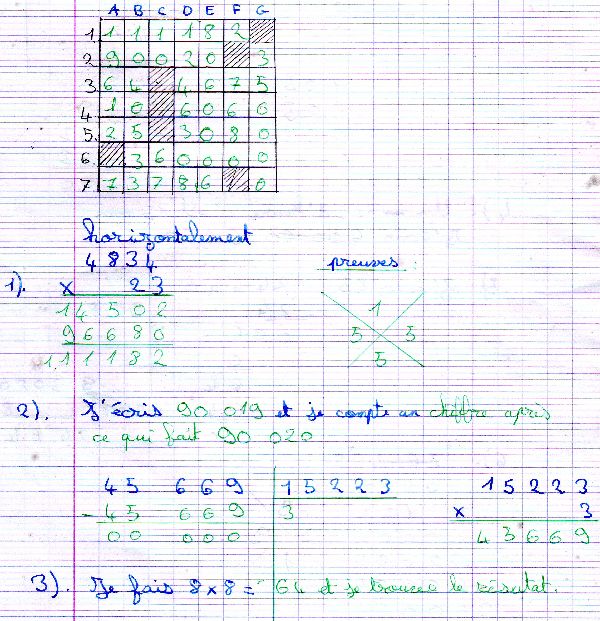 A B C D E F G
1. 1 1 1 1 8 2
2 9 0 0 2 0 3
3 6 4 4 6 7 5
4 1 0 6 0 6 0
5. 2 5 3 0 8 0
6. 3 6 0 0 0 0
7. 7 3 7 8 6 0
horizontalement
4 8 3 4
preuves
1). x 2 3
1 4 5 0 2
1
9 6 6 8 0
5 5
1.1 1 1 8 2
5
2). J'écris 90 019 et je compte un chiffre après
ce qui fait 90 020
45 669 15223 15223
- 45 669 3 x 3
00 000 43669
3). Je fais 8 x 8 = 64 et je trouve le résultat.